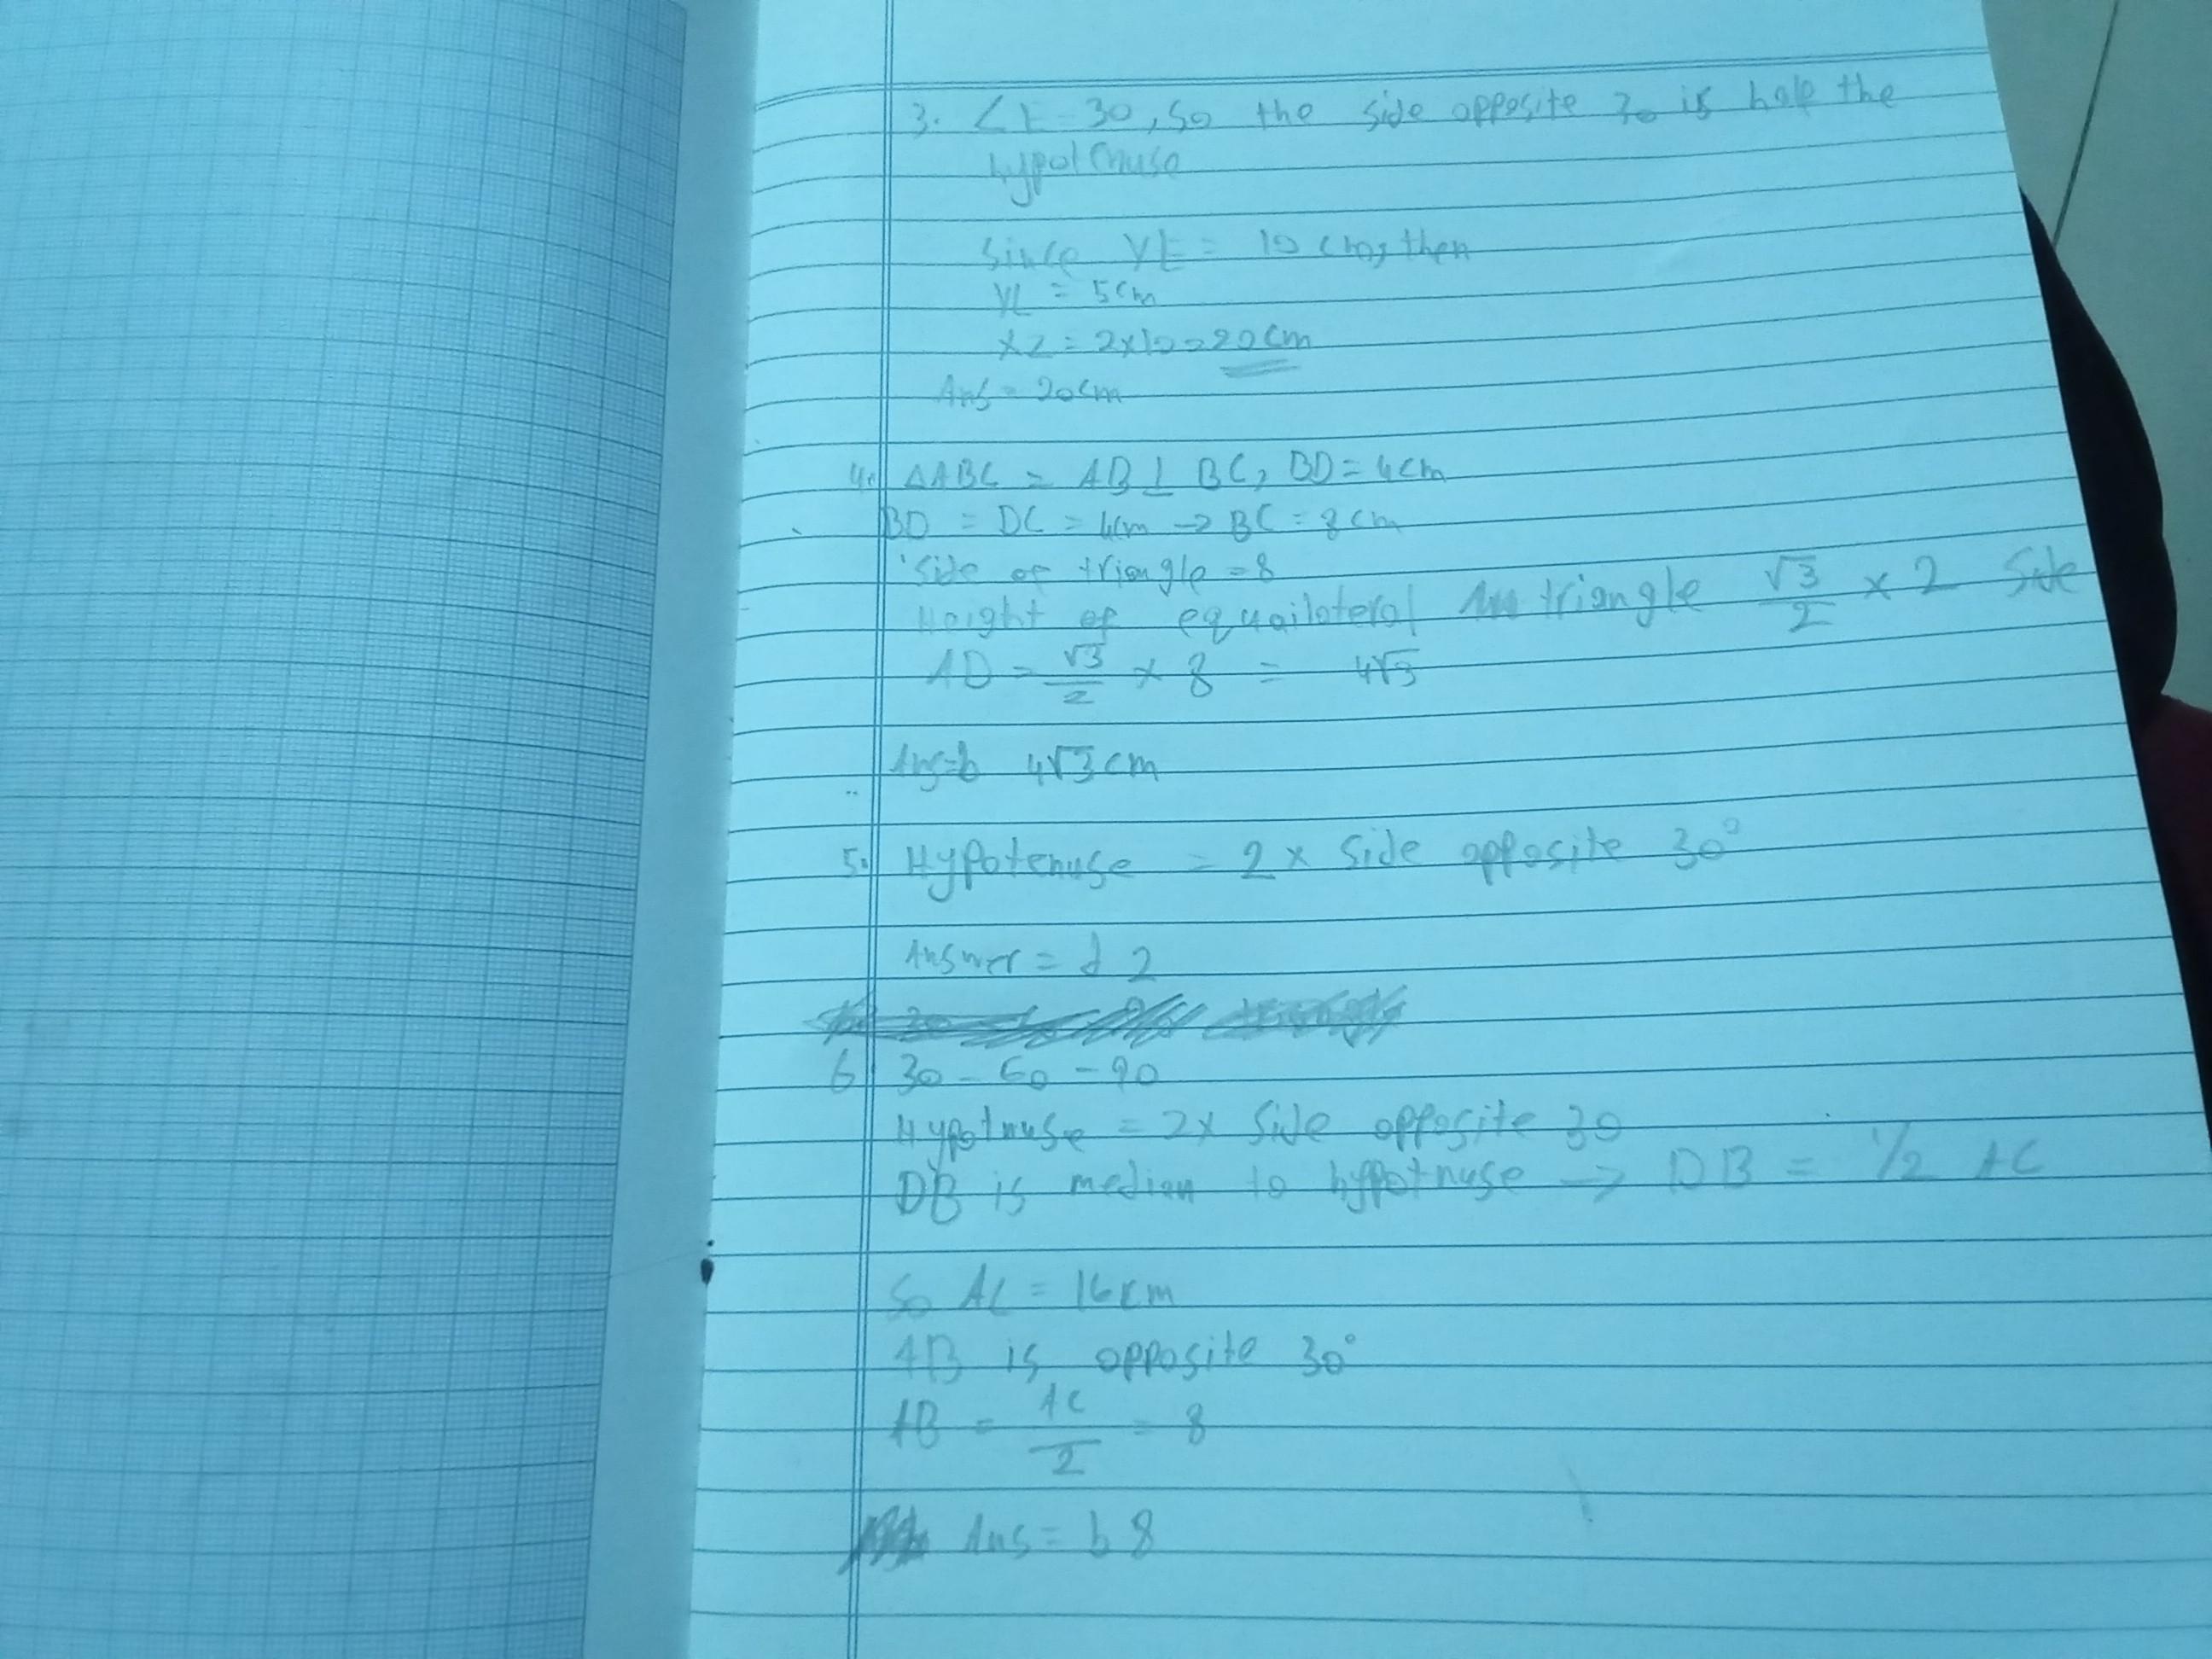 3. ∠E = 30, So the side opposite 30 is half the
hypotenuse
Since YE = 10 cm, then
YL = 5cm
XZ = 2x10 = 20cm
Ans = 20cm
4. ΔABC = AB ⊥ BC, BD = 4cm
BD = DC = 4cm → BC = 8cm
Side of triangle = 8
Height of equailateral triangle √3/2 × 2 Side
AD = √3/2 × 8 = 4√3
Ans = b 4√3 cm
5. Hypotenuse = 2 × Side opposite 30°
Answer = d 2
6 30 - 60 - 90
Hypotnuse = 2x Side opposite 30
DB is median to hypotnuse → DB = 1/2 AC
So AC = 16cm
AB is opposite 30°
AB = AC/2 = 8
Ans = b 8